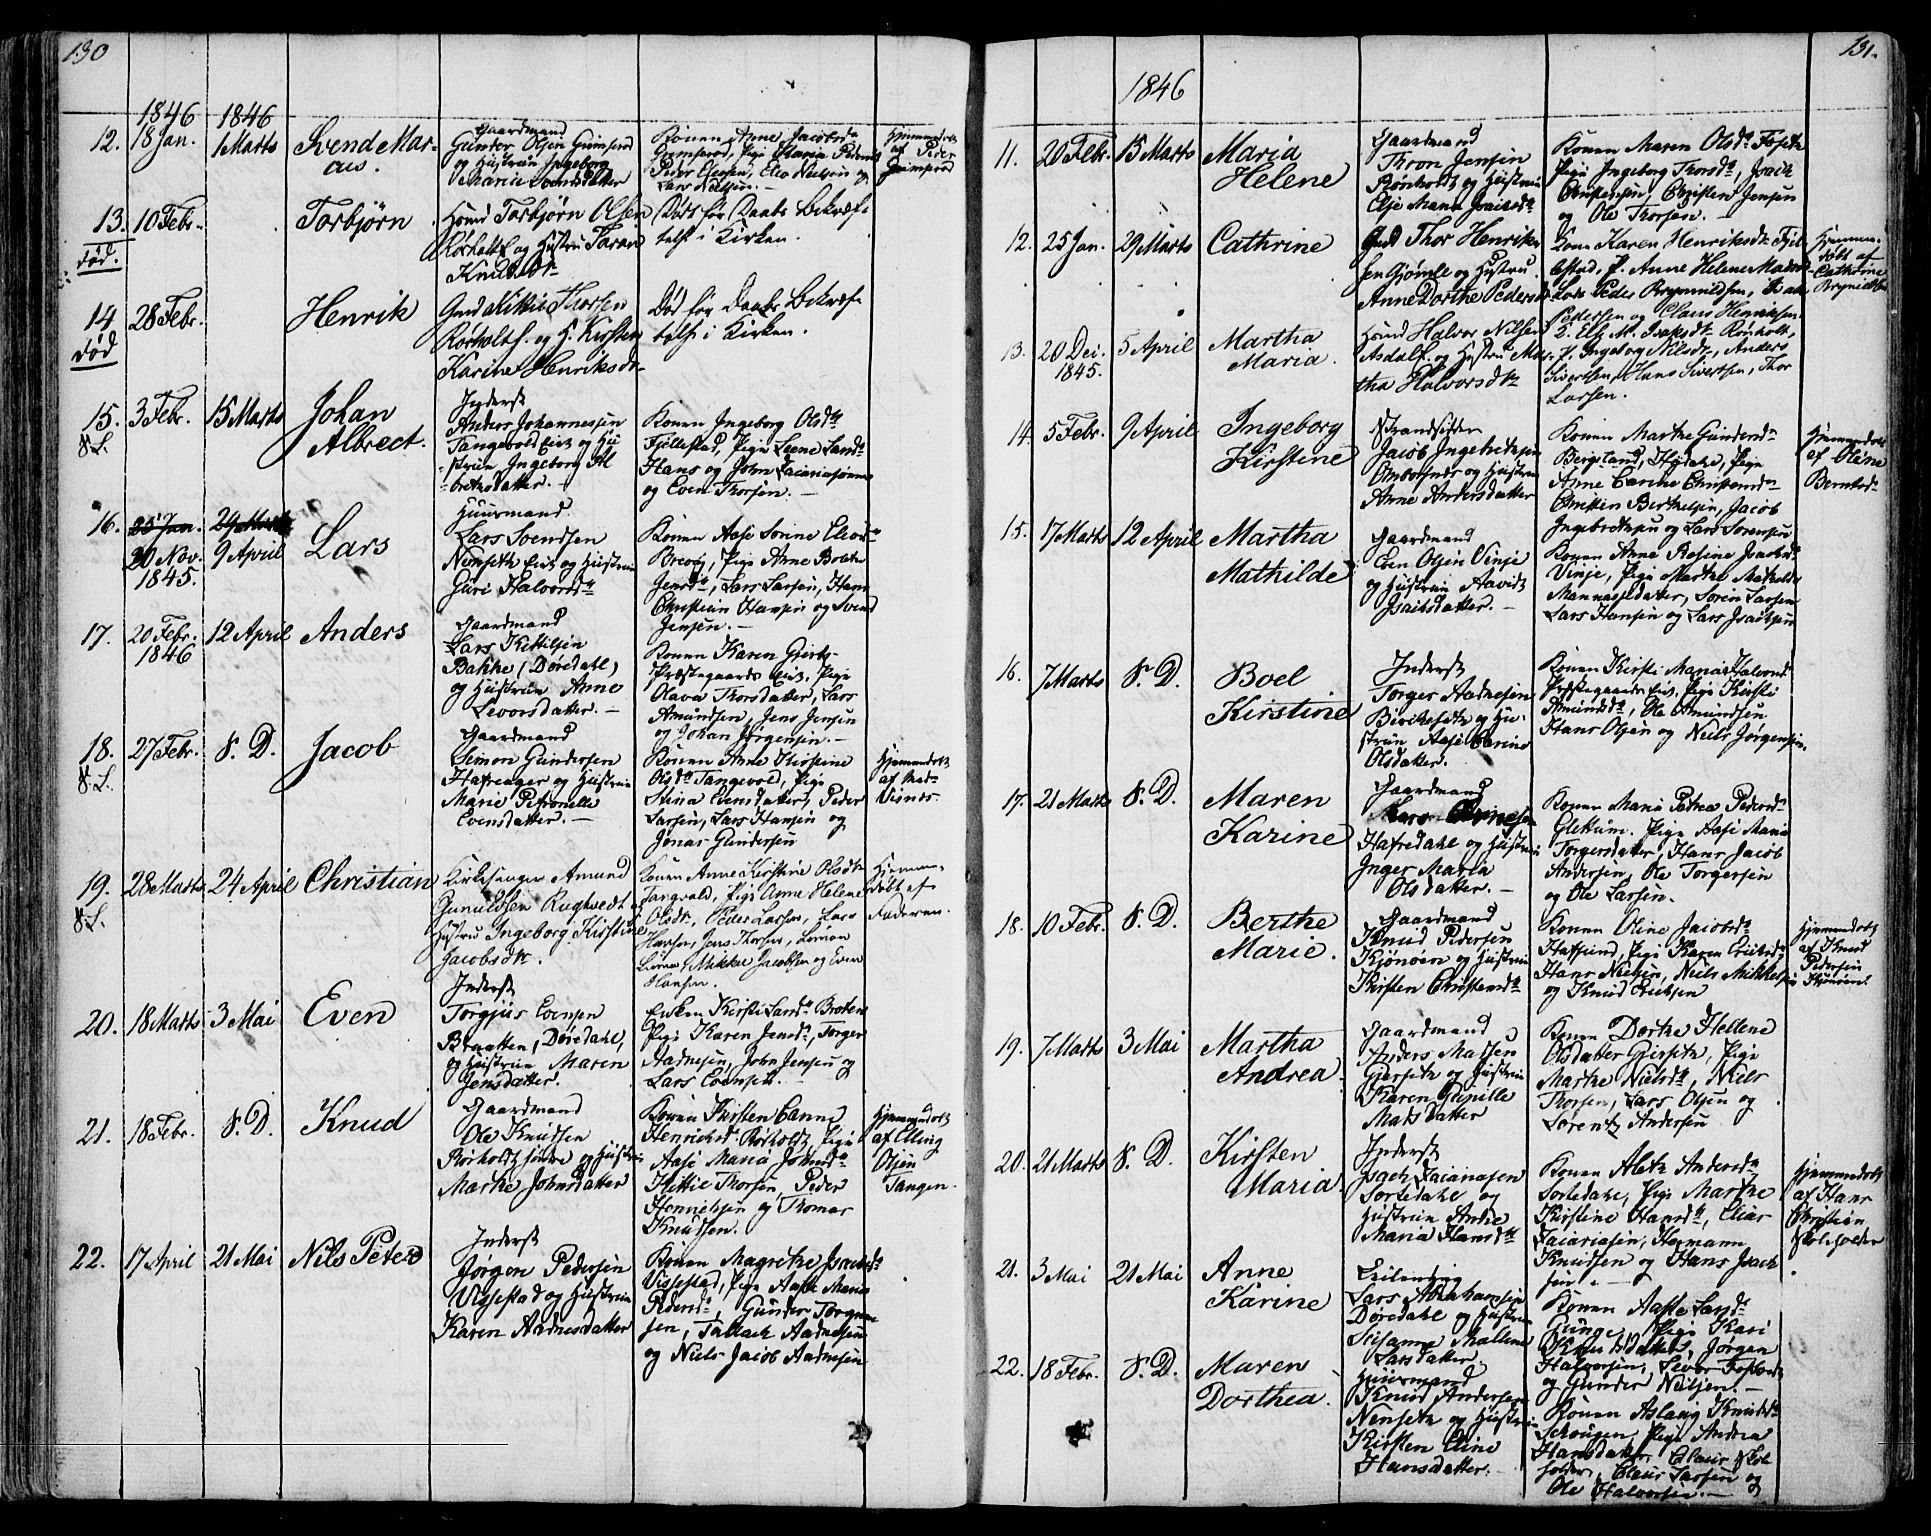 130
1846 1846
12. 18 Jan. 1 Marts Svend Mar-
cus.
Gaardmand
Gunder Olsen Grimsrød
og Hustrue Ingeborg
Maria Svendsdatter
Konen Anne Jacobsdr
Grimsrød, Pige Maria Peders
Peder Ellefsen, Nielsen og
Lars Nielsen.
Hjemmedøbt
af Peder
Grimsrød
13. 10 Febr. Torbjørn
død.
Huusmd Torbjørn Olsen
Rørholt og Hustru Taran
Knudsdtr
Død før Daabs Bekræf-
telse i Kirken.
14 28 Febr. Henrik
død
Gmd Kittil Thorsen
Rørholt og H. Kirsten
Karine Henriksdr
Død før Daabs Bekræf-
telse i Kirken.
15. 3 Febr. 15 Marts Johan
Albrect.
Inderst
Anders Johannessen
Tangvold Eiet og Hu-
strue Ingeborg Al-
bretsdatter.
Konen Ingeborg Olsdr
Fjellestad, Pige Lene Larsdr
Hans og John
og Even Thorsen.
16. 25 Jan. 29 Marts
20 Nov. 9 April Lars
1845.
Huusmand
Lars Svendsen
Nenseth Eiet og Hustrue
Gure Halvorsdr
Konen Aase Sorine
Brevig, Pige Anne Bolette
Jensdr, Lars Larsen, Hans
Christian Hansen og Svend
Jensen.
17. 20 Febr. 12 April Anders
1846
Gaardmand
Lars Kettilsen
Bakke, Dørdahl,
og Hustrue Anne
Levorsdatter.
Konen Karen
Præstegaards Eiet, Pige
Olava Thorsdatter, Lars
Amundsen, Jens Jensen
og Johan Jørgensen.
18. 27 Febr. S. D. Jacob
Gaardmand
Simon Gundersen
Hafsager og Hustrue
Marie Petronelle
Evensdatter.
Konen Anne Kirstine
Olsdr Tangvold, Pige
Stina Evensdatter, Peder
Larsen, Lars Hansen og
Jonas Gundersen
Hjemmedøbt
af Mad.
Visnes
19. 28 Marts 24 April Christian
Kirkesanger Amund
Gunuldsen Rugtvedt
Hustru Ingeborg Kirstine
Jacobsdtr.
Konen Anne Kirstine Olsdtr
Tangvald, Pige Anne Helene
Olsdtr, Peder Larsen, Lars
Hansen, Jens Thorsen, Simon
Mikkel Jacobsen og Even
Hansen.
Hjemme-
døbt af
Faderen.
20. 18 Marts 3 Mai Even
Inderst
Torgjus Evensen
Braatten, Dørdahl,
og Hustrue Maren
Jensdatter.
Enken Kirsti Larsdr Braten
Pige Karen Jensdr, Torger
Aadnesen, John Jensen og
Lars Evensen.
21. 18 Febr. S. D. Knud
Gaardmand
Ole Knudsen
Rørholt søndre og Hustrue
Marthe Johnsdatter
Konen Kirsten Canne
Henriksdr Rørholt, Pige
Aase Maria Johnsdr
Kittil Thorsen, Peder
og Thomas
Knudsen.
Hjemmedøbt
af Elling
Olsen
Tangen.
22. 17 April 21 Mai Nils Peter
Inderst
Jørgen Pedersen
Vissestad og Hustrue
Karen Aadnesdatter
Konen Magrethe Isachsdr
Vissestad, Pige Aase Marie
Pedersdr, Gunder Torger-
sen, Tallack Aadnesen
og Niels Jacob Aadnesen
131.
1846
11. 20 Febr. 15 Marts Maria
Helene
Gaardmand
Thron Jensen
Rønholt og Hustrue
Else Maria Isaksdr
Konen Maren Olsdr
Pige Ingeborg Thorsdr, Isach
Christensen, Christen Jensen
og Ole Thorsen.
12. 25 Jan. 29 Marts Cathrine
Gmd Thor Henrik-
sen Gjømle og Hustru
Anne Dorthe Pedersd
Kone Karen Henriksdtr Fjel-
lestad, P. Anne Helene
Peder Brynildsen,
Pedersen og Claus Henriksen
Hjemme-
døbt af
Cathrine
Brynildsen
13. 20 Dec. 5 April Martha
1845. Maria.
Huusmd Halvor Nilsen
Asdal. og Hustru Mar-
tha Halvorsdtr
K. Else M. Isaksdr Rønholt,
P. Ingeborg Nilsdtr, Anders
Sivertsen, Hans Sivertsen, Thor
Larsen.
14. 5 Febr. 9 April Ingeborg
Kirstine
Strandsidder
Jacob Ingebretsen
Ombordsnes og Hustrue
Anne Andersdatter
Konen Marthe Gundersdr
Bergsland, Pige
Anne Carine Christensdr
Christen Berthelsen, Jacob
Ingebretsen og Lars Sørensen
Hjemmedøbt
af Oline
Berntsdr
15. 17 Marts 12 April Martha
Mathilde
Gaardmand
Even Olsen Vinje
og Hustrue
Isaksdatter.
Konen Anne Rosine Jacobsdr
Vinje, Pige Marthe Mathilde
Mannassedatter, Søren Larsen
Lars Hansen og Lars Isachsen
16. 7 Marts S. D. Boel
Kirstine
Inderst
Torger Aadnesen
og Hu-
strue Aase Karine
Olsdatter.
Konen Kirsti Maria Halvorsd
Præstegaards Eiet, Pige Kirsti
Amundsdr, Ole Amundsen
Hans Olsen og Niels Jørgensen.
17. 21 Marts S. D. Maren
Karine
Gaardmand
Hafredahl og Hustrue
Inger Maria
Olsdatter.
Konen Maria Petrea Pedersdr
Pige Aase Maria
Torgersdatter, Hans Jacob
Andersen, Ole Torgersen
og Ole Larsen.
18. 10 Febr. S. D. Berthe
Marie.
Gaardmand
Knud Pedersen
Kjønøen og Hustrue
Kirsten Christensdr
Konen Oline Jacobsdr
Hafsund, Pige Karen Eriksdr
Hans Nielsen, Niels Mikkelsen
og Knud Eriksen
Hjemmedøbt
af Knud
Pedersen
Kjønøen.
19. 7 Marts 3 Mai Martha
Andrea
Gaardmand
Anders Madsen
Gjerseth og Hustrue
Karen Pernille
Madsdatter
Konen Dorthe Hellene
Olsdatter Gjerseth, Pige
Marthe Nielsdr, Niels
Thorsen, Lars Olsen og
Lorentz Andersen
20. 21 Marts S. D. Kirsten
Maria
Inderst
Isach
Sortedahl og
Hustrue Andrea
Maria Hansdr
Konen Aleth Andersdr
Sortedahl, Pige Marthe
Kirstine Hansdr, Elias
Hermann
Knudsen og Hans Isach-
sen.
Hjemmedøbt
af Hans
Christian
Skoleholder
21. 3 Mai 21 Mai Anne
Karine
Leilending
Lars Abrahamsen
Dørdahl og Hustrue
Susanne Mallene
Larsdatter
Konen Aaste Larsdr
Pige Kari
Knudsdatter, Jørgen
Halvorsen, Levor
og Gunder Nielsen.
22. 18 Febr. S. D. Maren
Dorthea.
Huusmand
Knud Andersen
Nenseth og Hustrue
Kirsten Eline
Hansdatter.
Konen Aslaug Knudsdr
Skougen, Pige Andrea
Hansdatter, Claus Skole-
holder, Claus Larsen og
Ole Halvorsen.